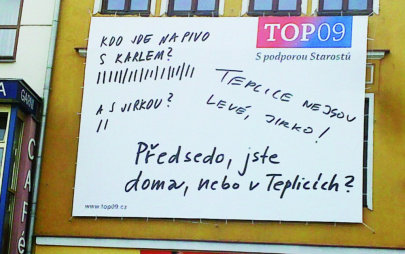 TOP09
S podporou Starostů
KDO JDE NA PIVO
S KARLEM?
A S JIRKOU?
TEPLICE NEJSOU
LEVÉ, JIRKO!
Předsedo, jste
doma, nebo v Teplicích?
www.top09.cz
GARNI
CAFÉ